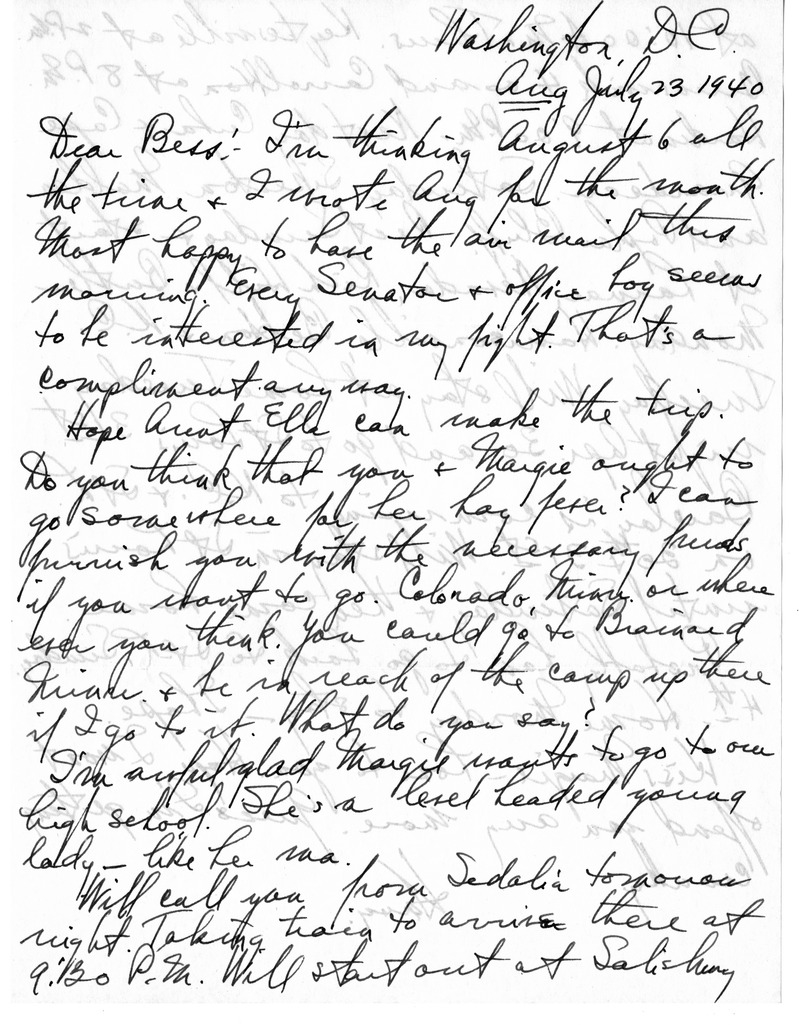 Washington, D.C.
Aug July 23 1940
Dear Bess:- I'm thinking August 6 all
the time & I wrote Aug for the month.
Most happy to have the air mail this
morning. Every Senator & office boy seems
to be interested in my fight. That's a
compliment any way.
Hope Aunt Ella can make the trip.
Do you think that you & Margie ought to
go somewhere for her hay fever? I can
furnish you with the necessary funds
if you want to go. Colorado, Minn. or where
ever you think. You could go to Brainard
Minn. & be in reach of the camp up there
if I go to it. What do you say?
I'm awful glad Margie wants to go to our
high school. She's a level headed young
lady - like her ma.
Will call you from Sedalia tomorrow
night. Taking train to arrive there at
9:30 P.M. Will start out at Salisbury